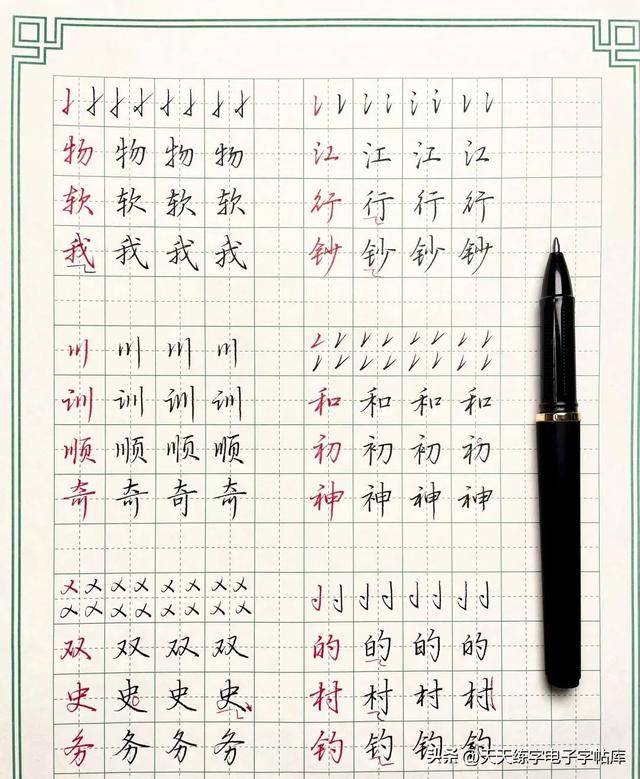 物物物物 江江江江
软软软软 行行行行
我我我我 钞钞钞钞
川川川川
训训训训 和和和和
顺顺顺顺 初初初初
奇奇奇奇 神神神神
双双双双 的的的的
史史史史 村村村村
务务务务 钓钓钓钓
头条@天天练字电子字帖库